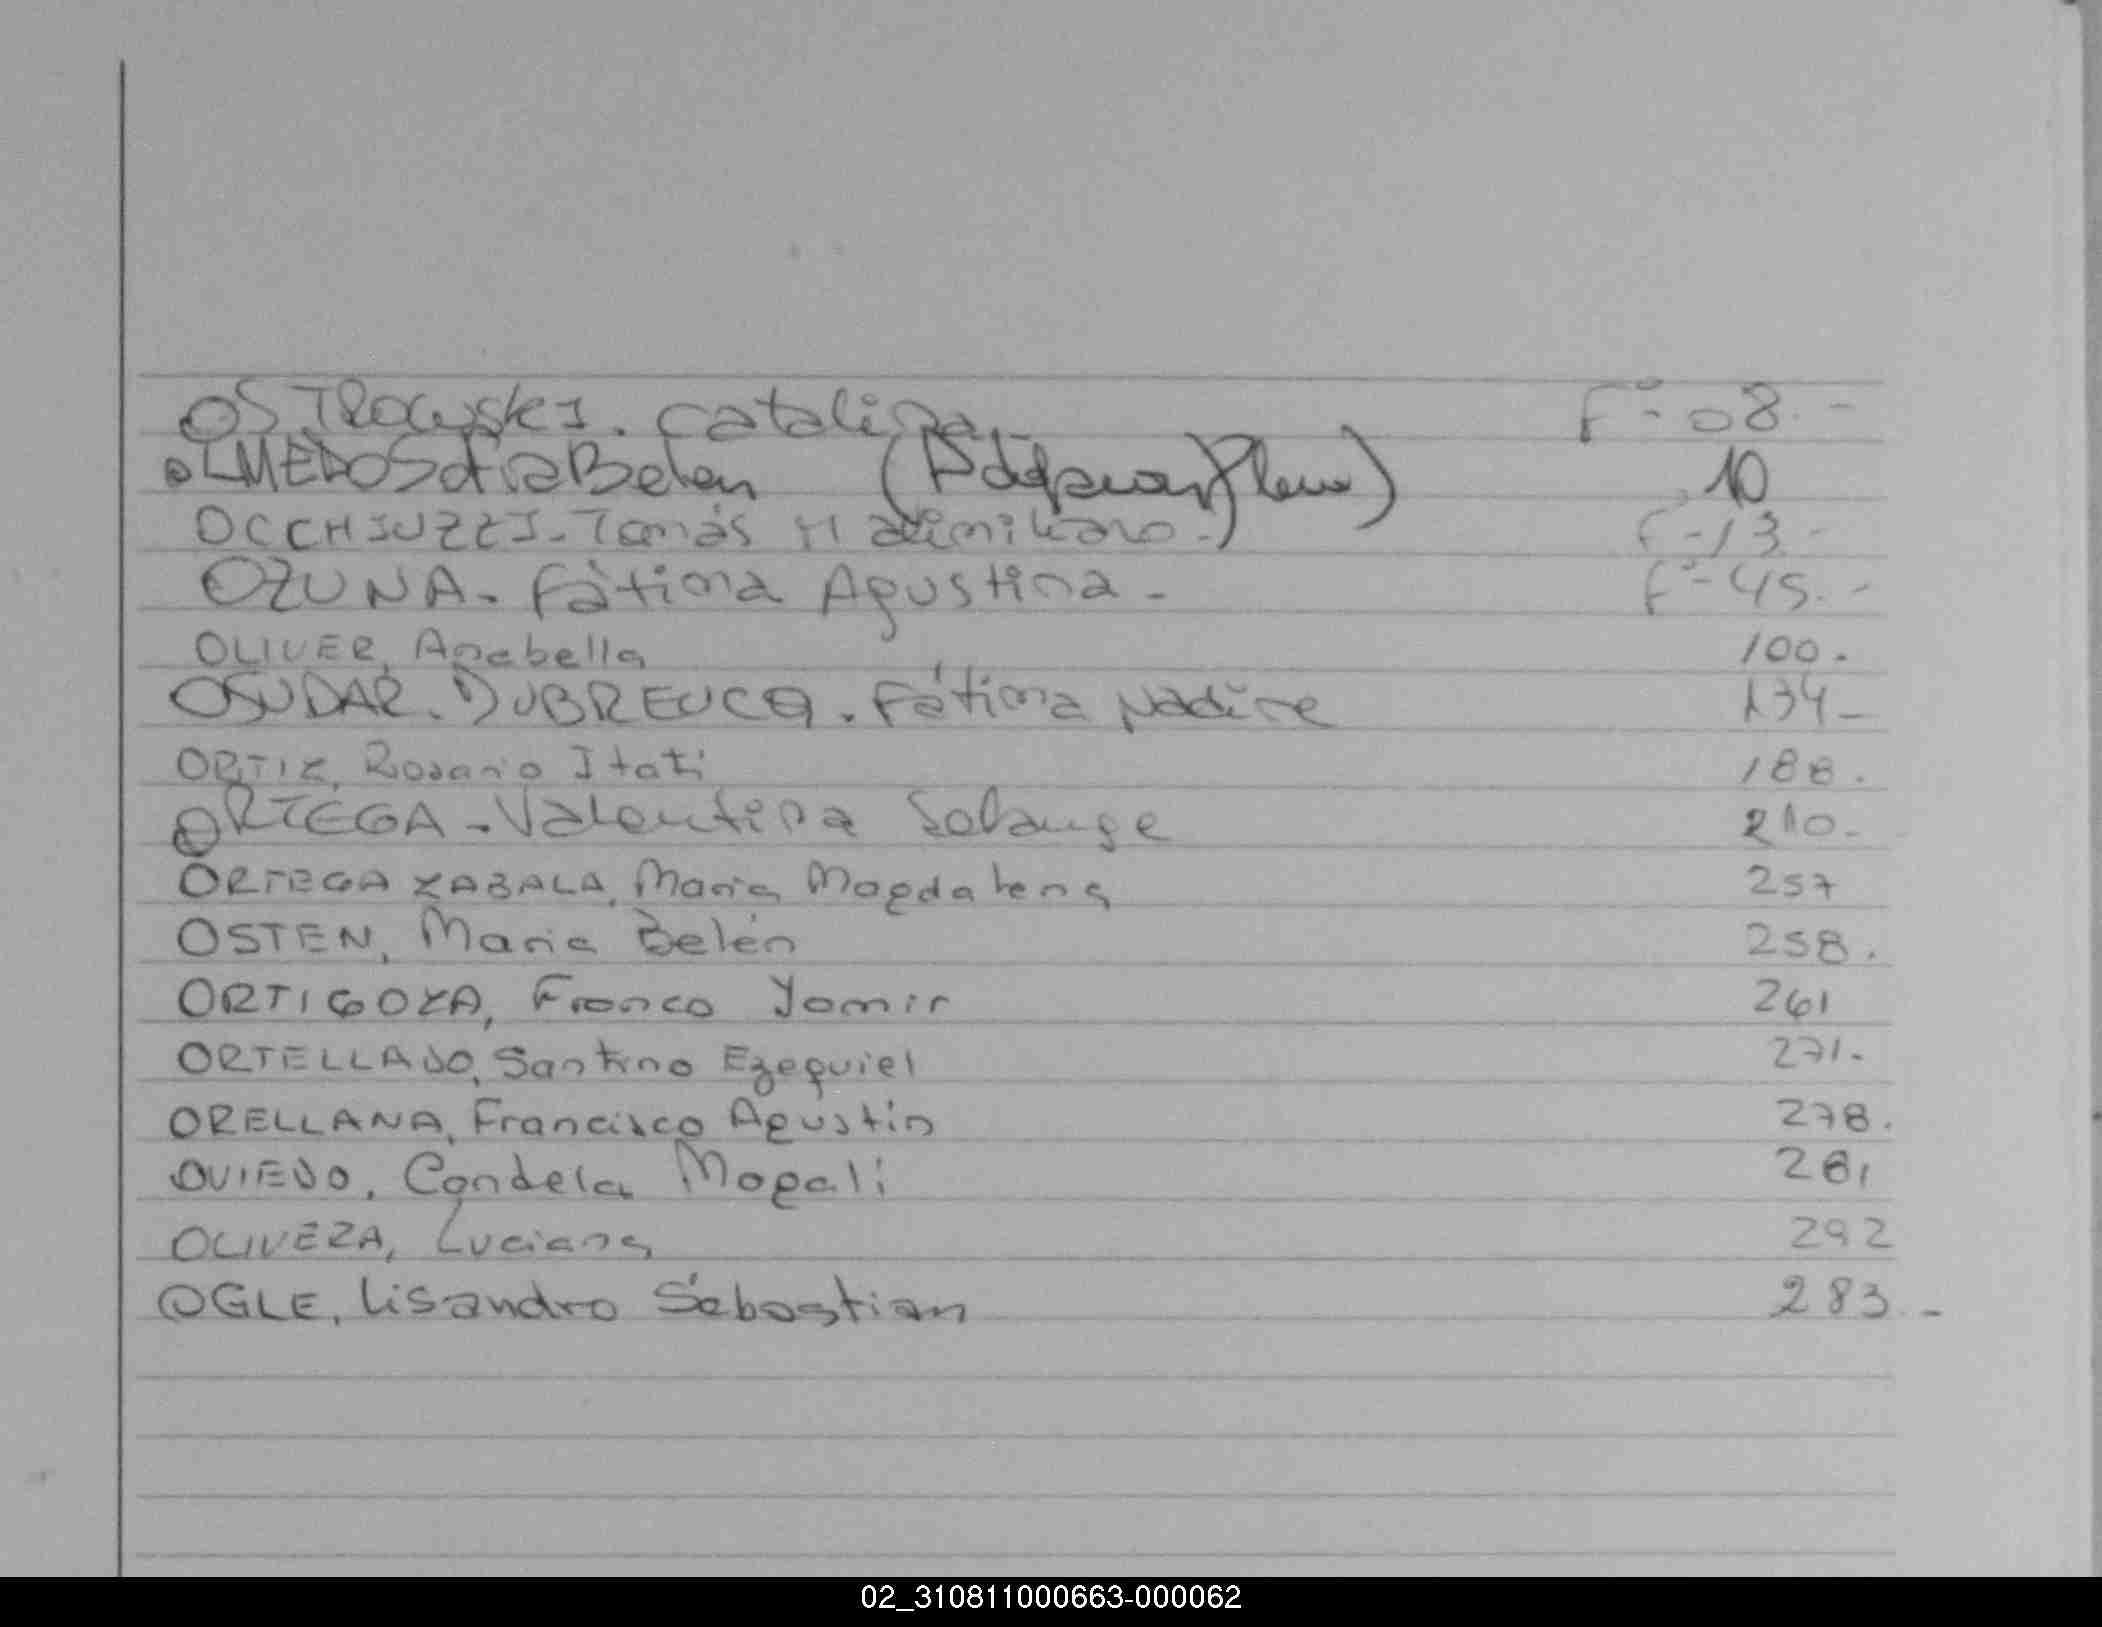 OSTROWSKI. Catalina.- Fº- 08.-
OLMEDO Sofia Belen (Adopcion Plena) 10
OCCHIUZZI- Tomás Maximiliano.- F-13.-
OZUNA- Fátima Agustina- Fº-45.-
OLIVER, Anabella 100.
OSUDAR. DUBREUCQ. Fátima Nadine 134-
ORTIZ, Rosario Itati 188.
ORTEGA- Valentina Solange 210-
ORTEGA ZABALA, Maria Magdalena 257
OSTEN, Maria Belén 258.
ORTIGOZA, Franco Yamir 261
ORTELLADO, Santino Ezequiel 271.
ORELLANA, Francisco Agustin 278.
OVIEDO, Candela Magali 281
OLIVERA, Luciana 292
OGLE, Lisandro Sebastian 283.-
02_310811000663-000062